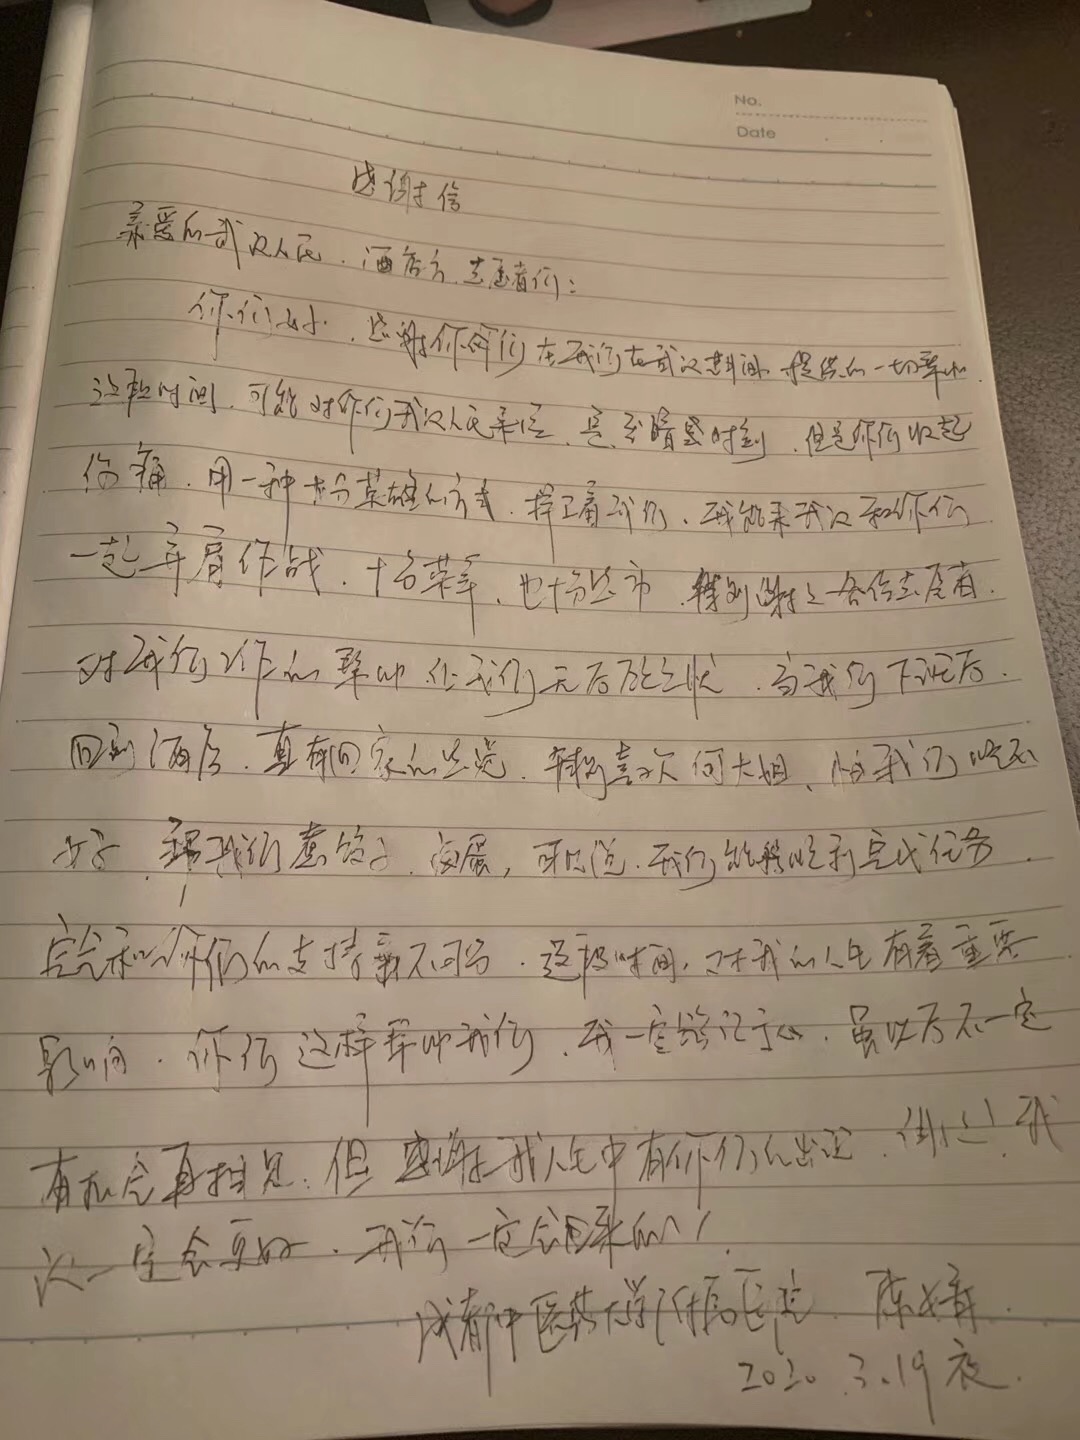 No.
Date
感谢信
亲爱的武汉人民、酒店方、志愿者们：
你们好、感谢你们在我们在武汉期间提供的一切帮助.
这段时间、可能对你们武汉人民来说、是至暗黑时刻、但是你们收起
伤痛、用一种十分英雄的方式、撑着我们、我能来武汉和你们
一起并肩作战、十分荣幸、也十分 特别谢谢各位志愿者、
对我们工作的帮助 让我们无后顾之忧、当我们下班后、
回到酒店、真有回家的感觉、特别喜欢何大姐、怕我们吃不
好、给我们煮饺子、卤蛋，可以说、我们能够顺利完成任务、
完全和你们的支持密不可分、这段时间、对我的人生有着重要
影响、你们这样帮助我们、我一定铭记于心、虽以后不一定
有机会再相见、但感谢我人生中有你们的出现、谢谢！武
汉一定会更好、我们一定会回来的！
成都中医药大学附属医院 陈
2020.3.19夜.